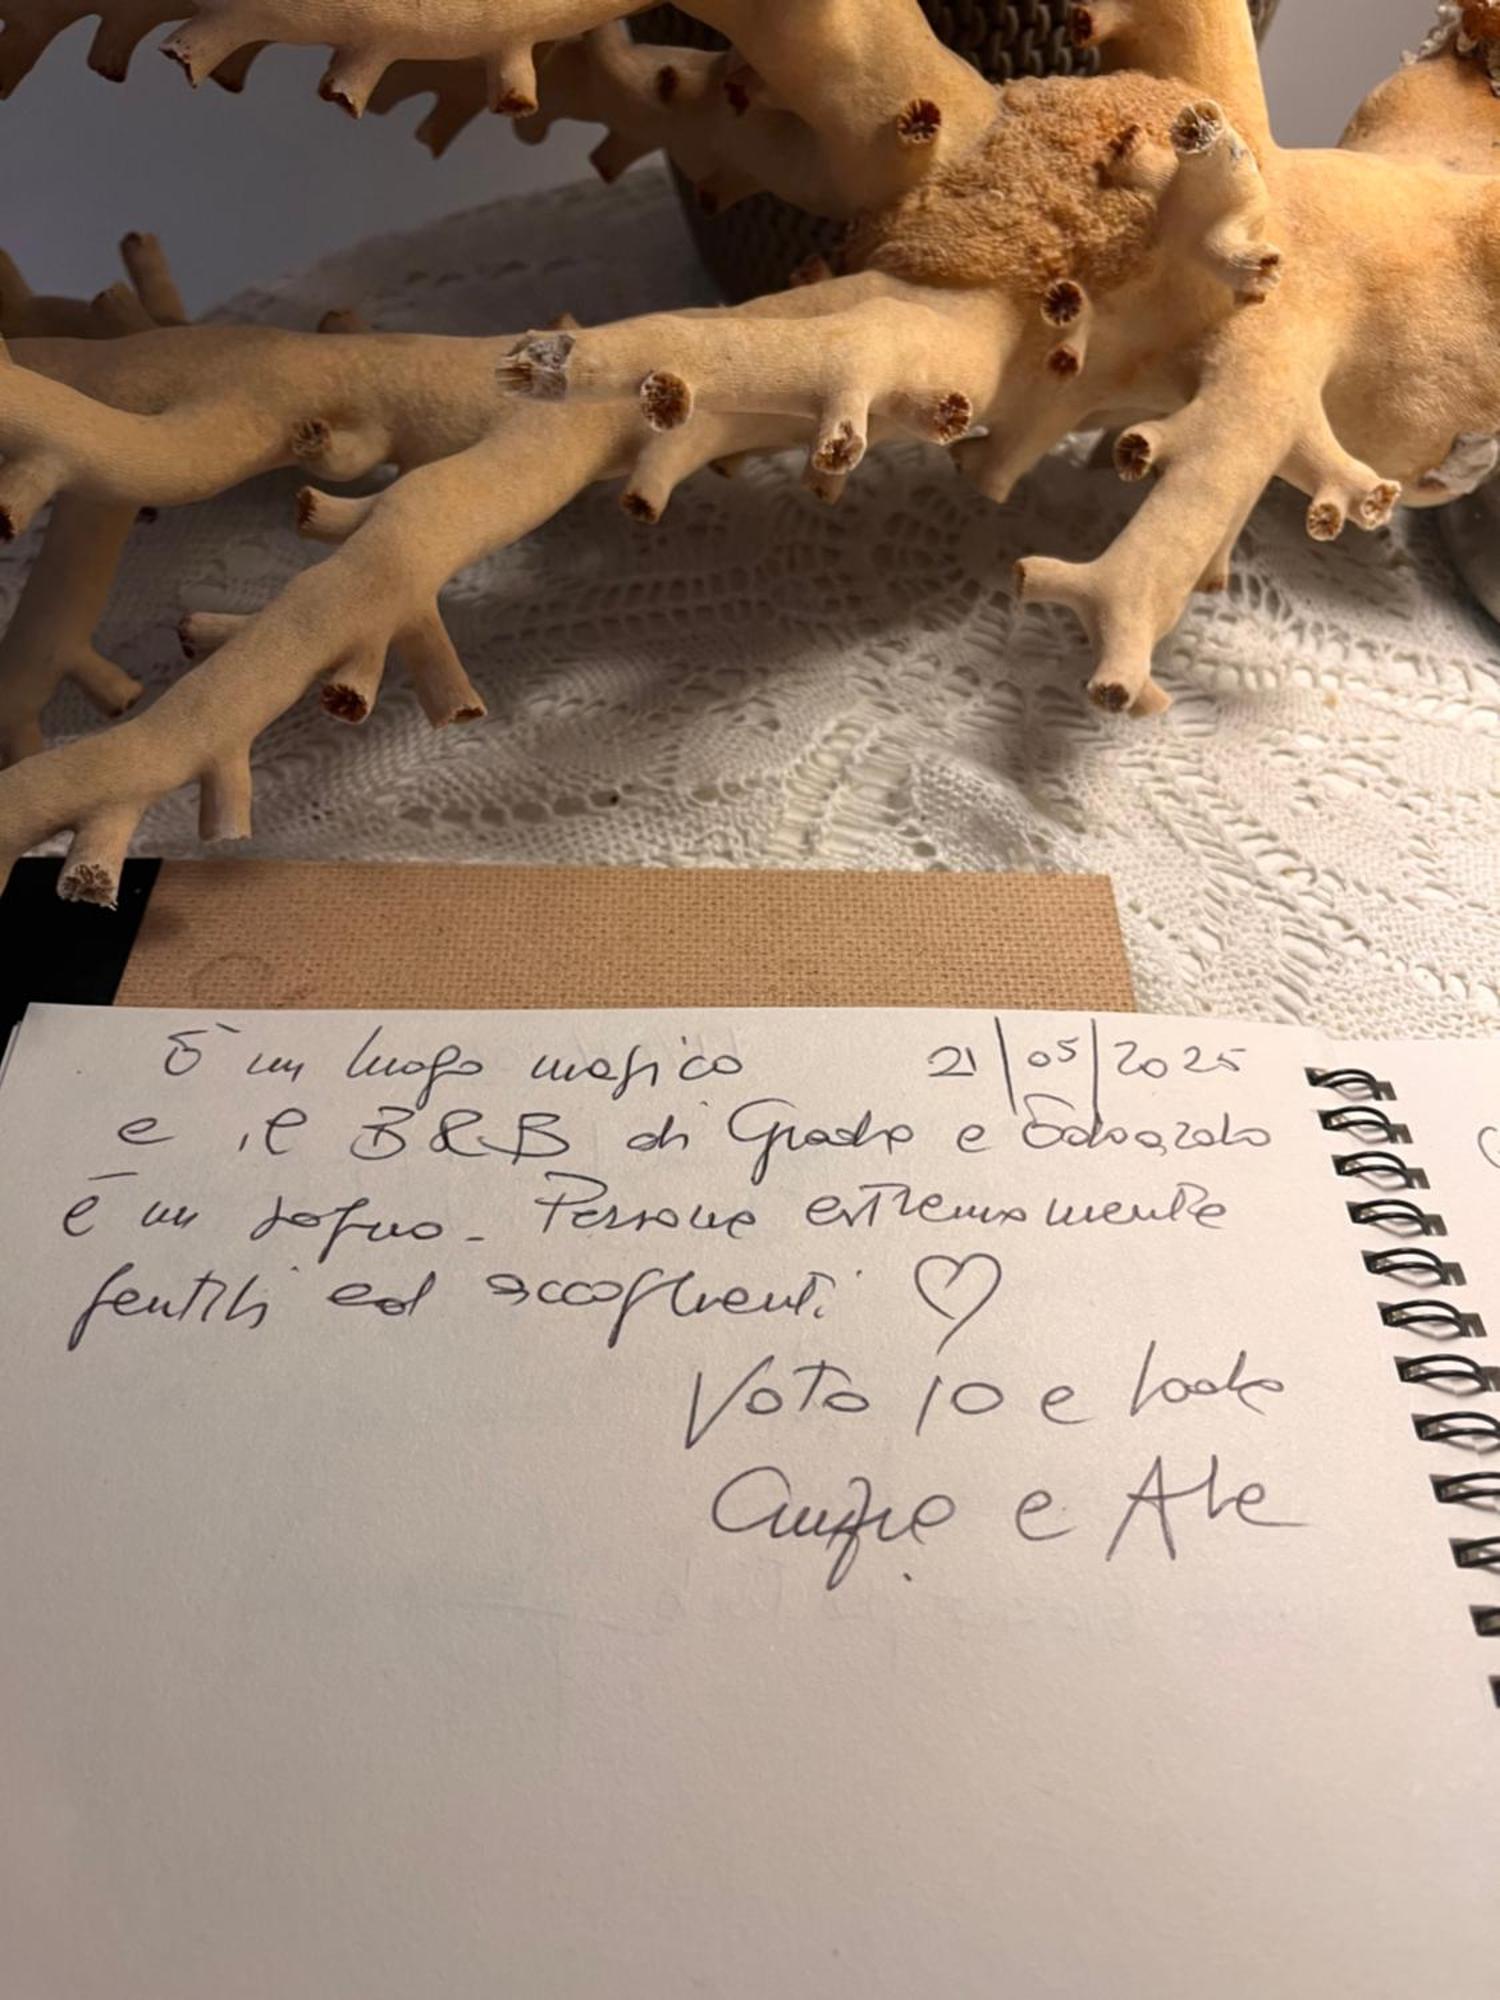 È un luogo magico 21/05/2025
e il B&B di e Edoardo
è un sogno - Persone estremamente
gentili ed accoglienti ♡
Voto 10 e lode
e Ale